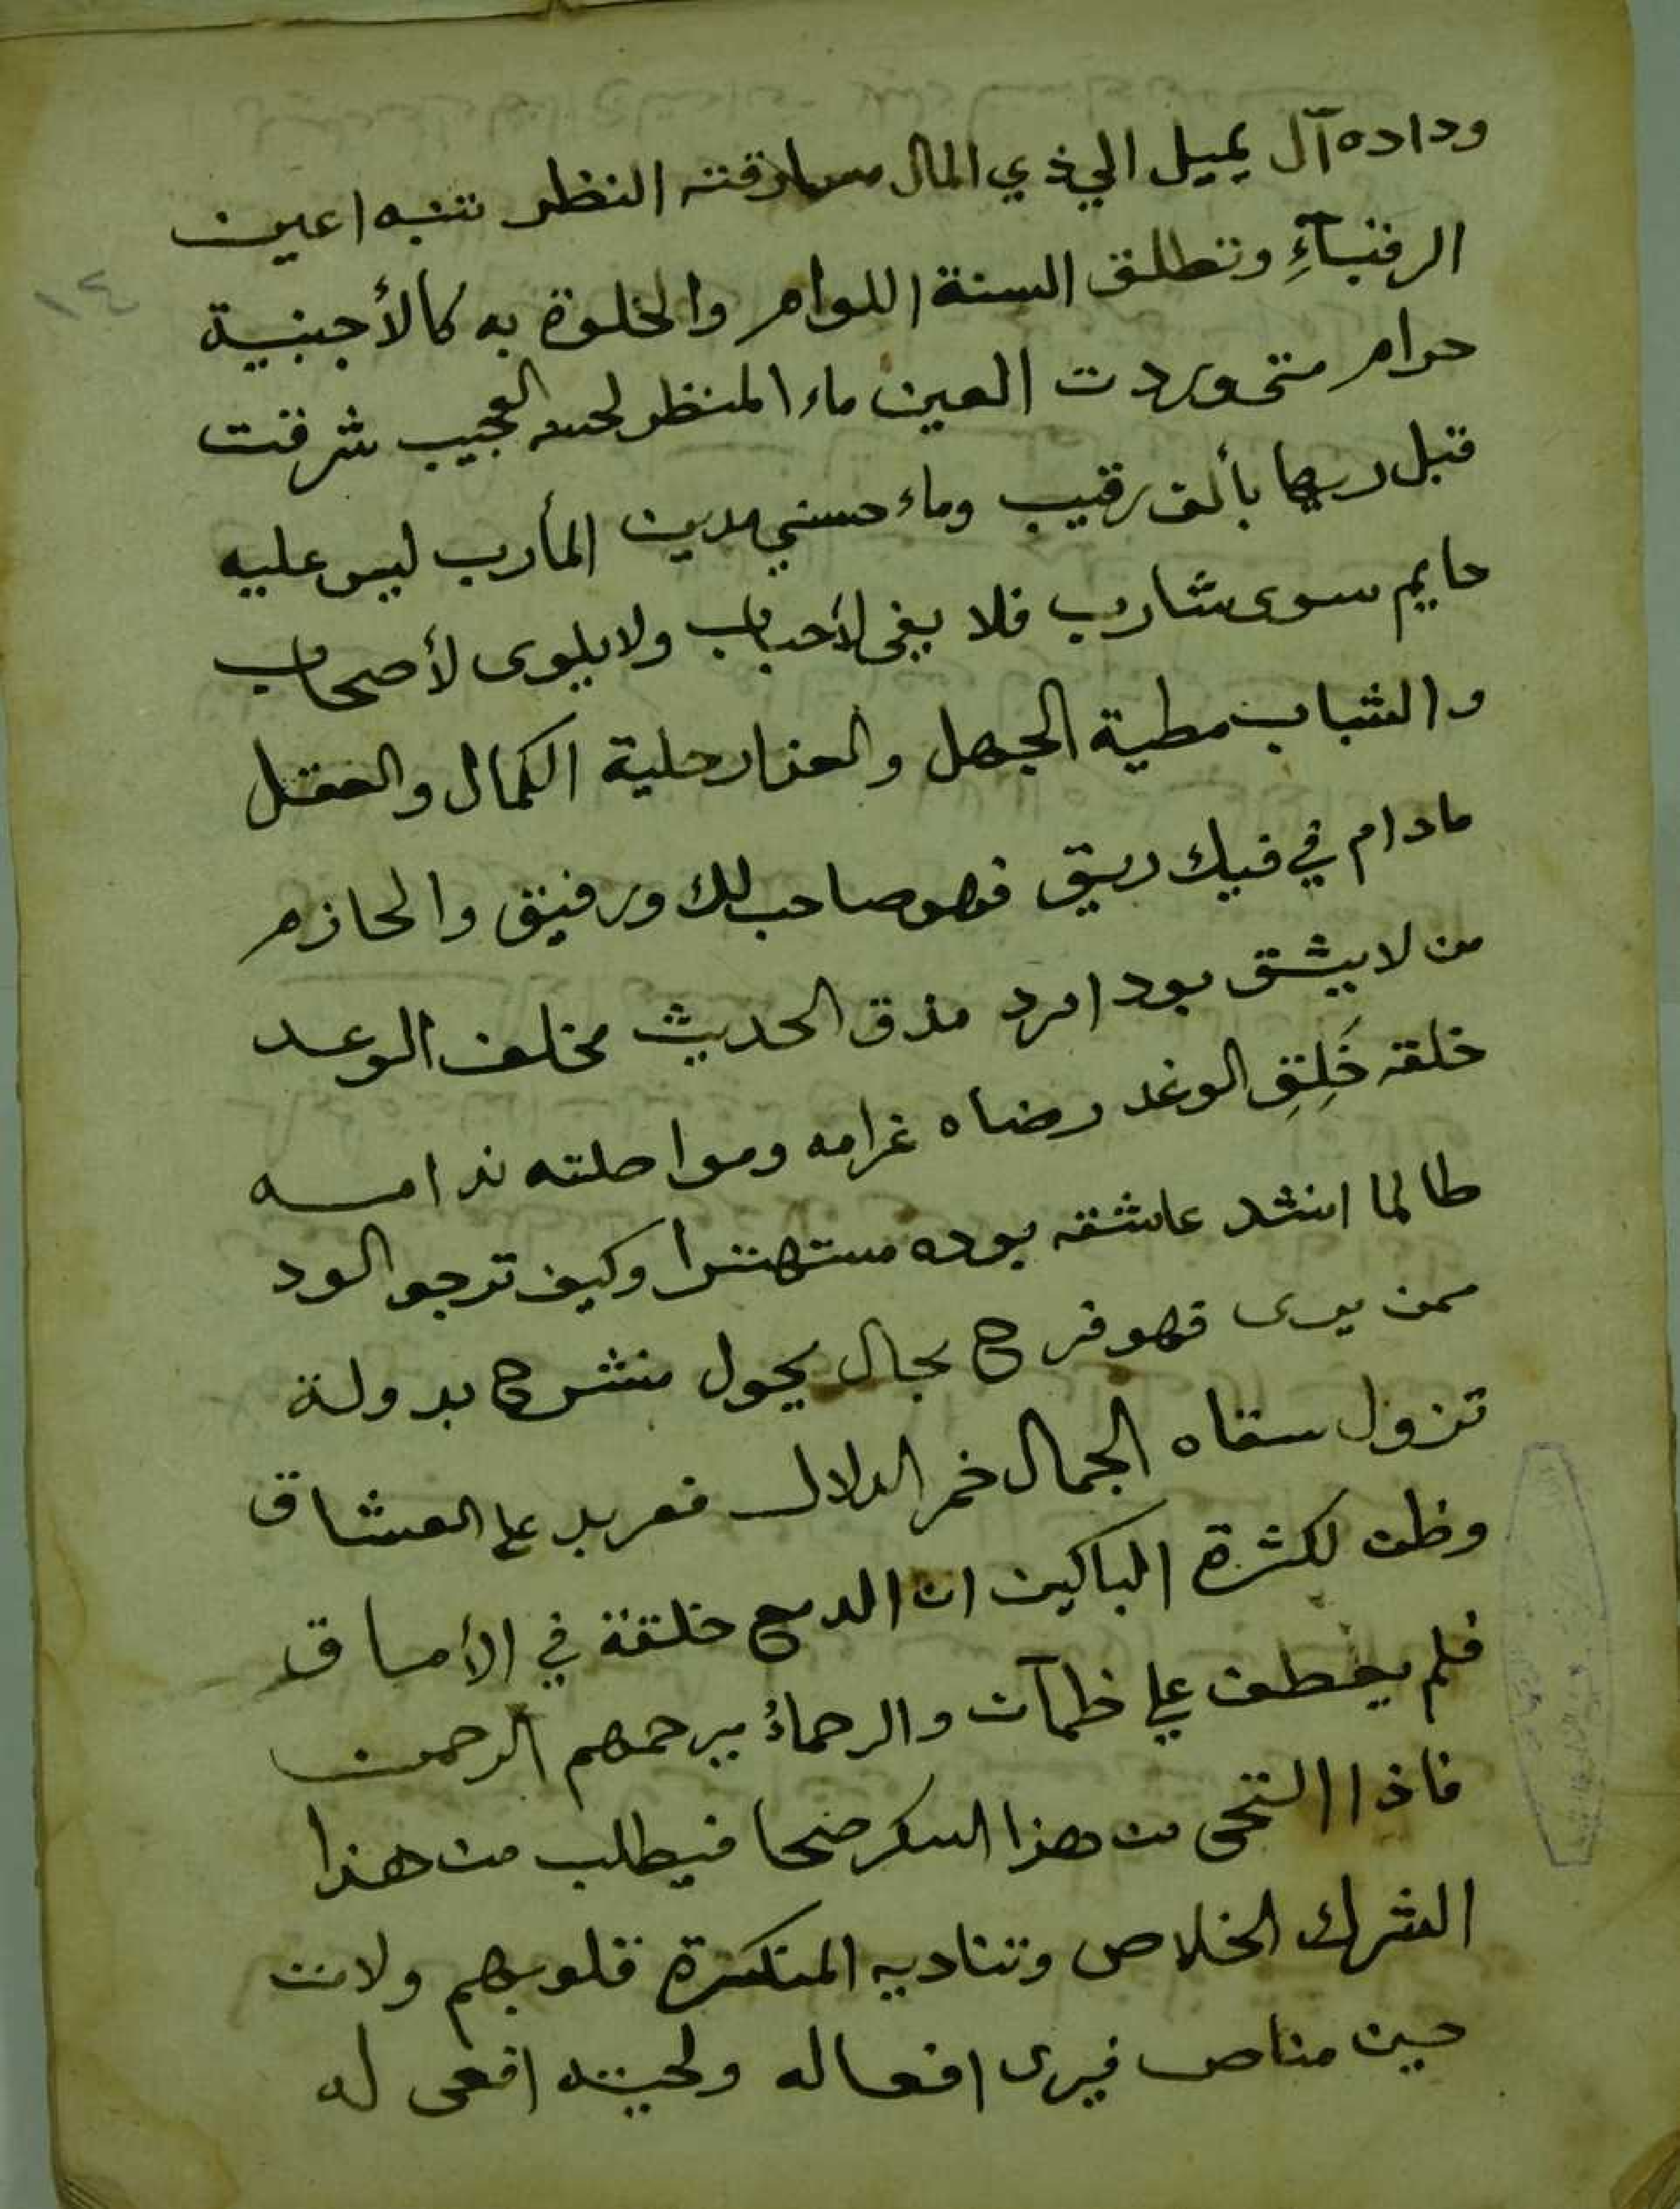 وداده آل يميل الي ذي المال مسارقته النظر تنبه اعين
الرقبآءِ وتطلق السنة اللوام والخلوة به كالأجنبية
حرام متى وردت العين ماء المنظر لحسنه العجيب شرقت
قبل ريها بألف رقيب وماء حسني مدين المأرب ليس عليه
حايم سوى شارب فلا يفى لأحباب ولا يلوى لأصحاب
والشباب مطية الجهل والعذار حلية الكمال والعقل
مادام في فيك ريق فهو صاحب لك ورفيق والحازم
من لا يثق بود امرد مذق الحديث مخلف الوعد
خلقه خَلِقِ الوغد رضاه غرامه ومواصلته ندامه
طالما انشد عاشقه بوده مستهترا وكيف ترجو الود
ممن يرى فهو فرح بجال يحول منشرح بدولة
تزول سقاه الجمال خمر الدلال فعربد على العشاق
وظن لكثرة الباكين ان الدمع خلقة في الأماق
فلم يعطف علي ظمآن والرحماءُ يرحمهم الرحمن
فاذا التحى من هذا السكر صحا فيطلب من هذا
الشرك الخلاص وتناديه المنكسرة قلوبهم ولات
حين مناص فيرى افعاله ولحيته افعى له
١٤